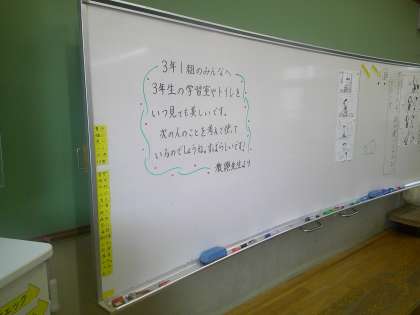 3年1組のみんなへ
3年生の学習室やトイレを
いつ見ても美しいです。
次の人のことを考えて使って
いるのでしょうね。すばらしいです!
教頭先生より